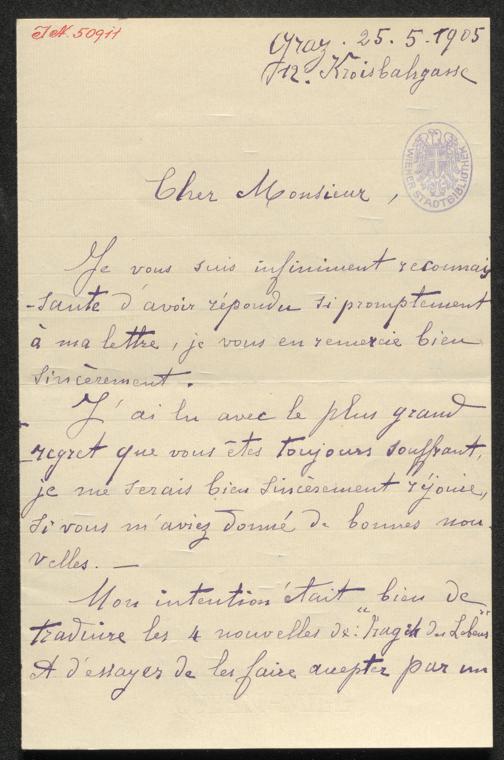 I.N. 50911
Graz. 25. 5. 1905
12. Kroisbahgasse
WIENER STADTBIBLIOTHEK
Cher Monsieur,
Je vous suis infiniment reconnais
-sante d'avoir répondu si promptement
à ma lettre, je vous en remercie bien
sincèrement.
J'ai lu avec le plus grand
regret que vous êtes toujours souffrant,
je me serais bien sincèrement réjouie,
si vous m'aviez donné de bonnes nou-
velles. —
Mon intention était bien de
traduire les 4 nouvelles de: "Tragik des Lebens"
et d'essayer de les faire accepter par un